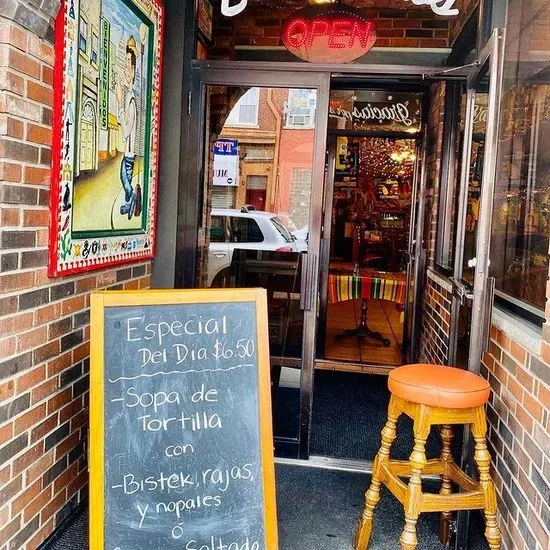 OPEN
Gracias
Especial
Del Dia $6.50
- Sopa de
Tortilla
con
- Bistek, rajas,
y nopales
ó
Saltado